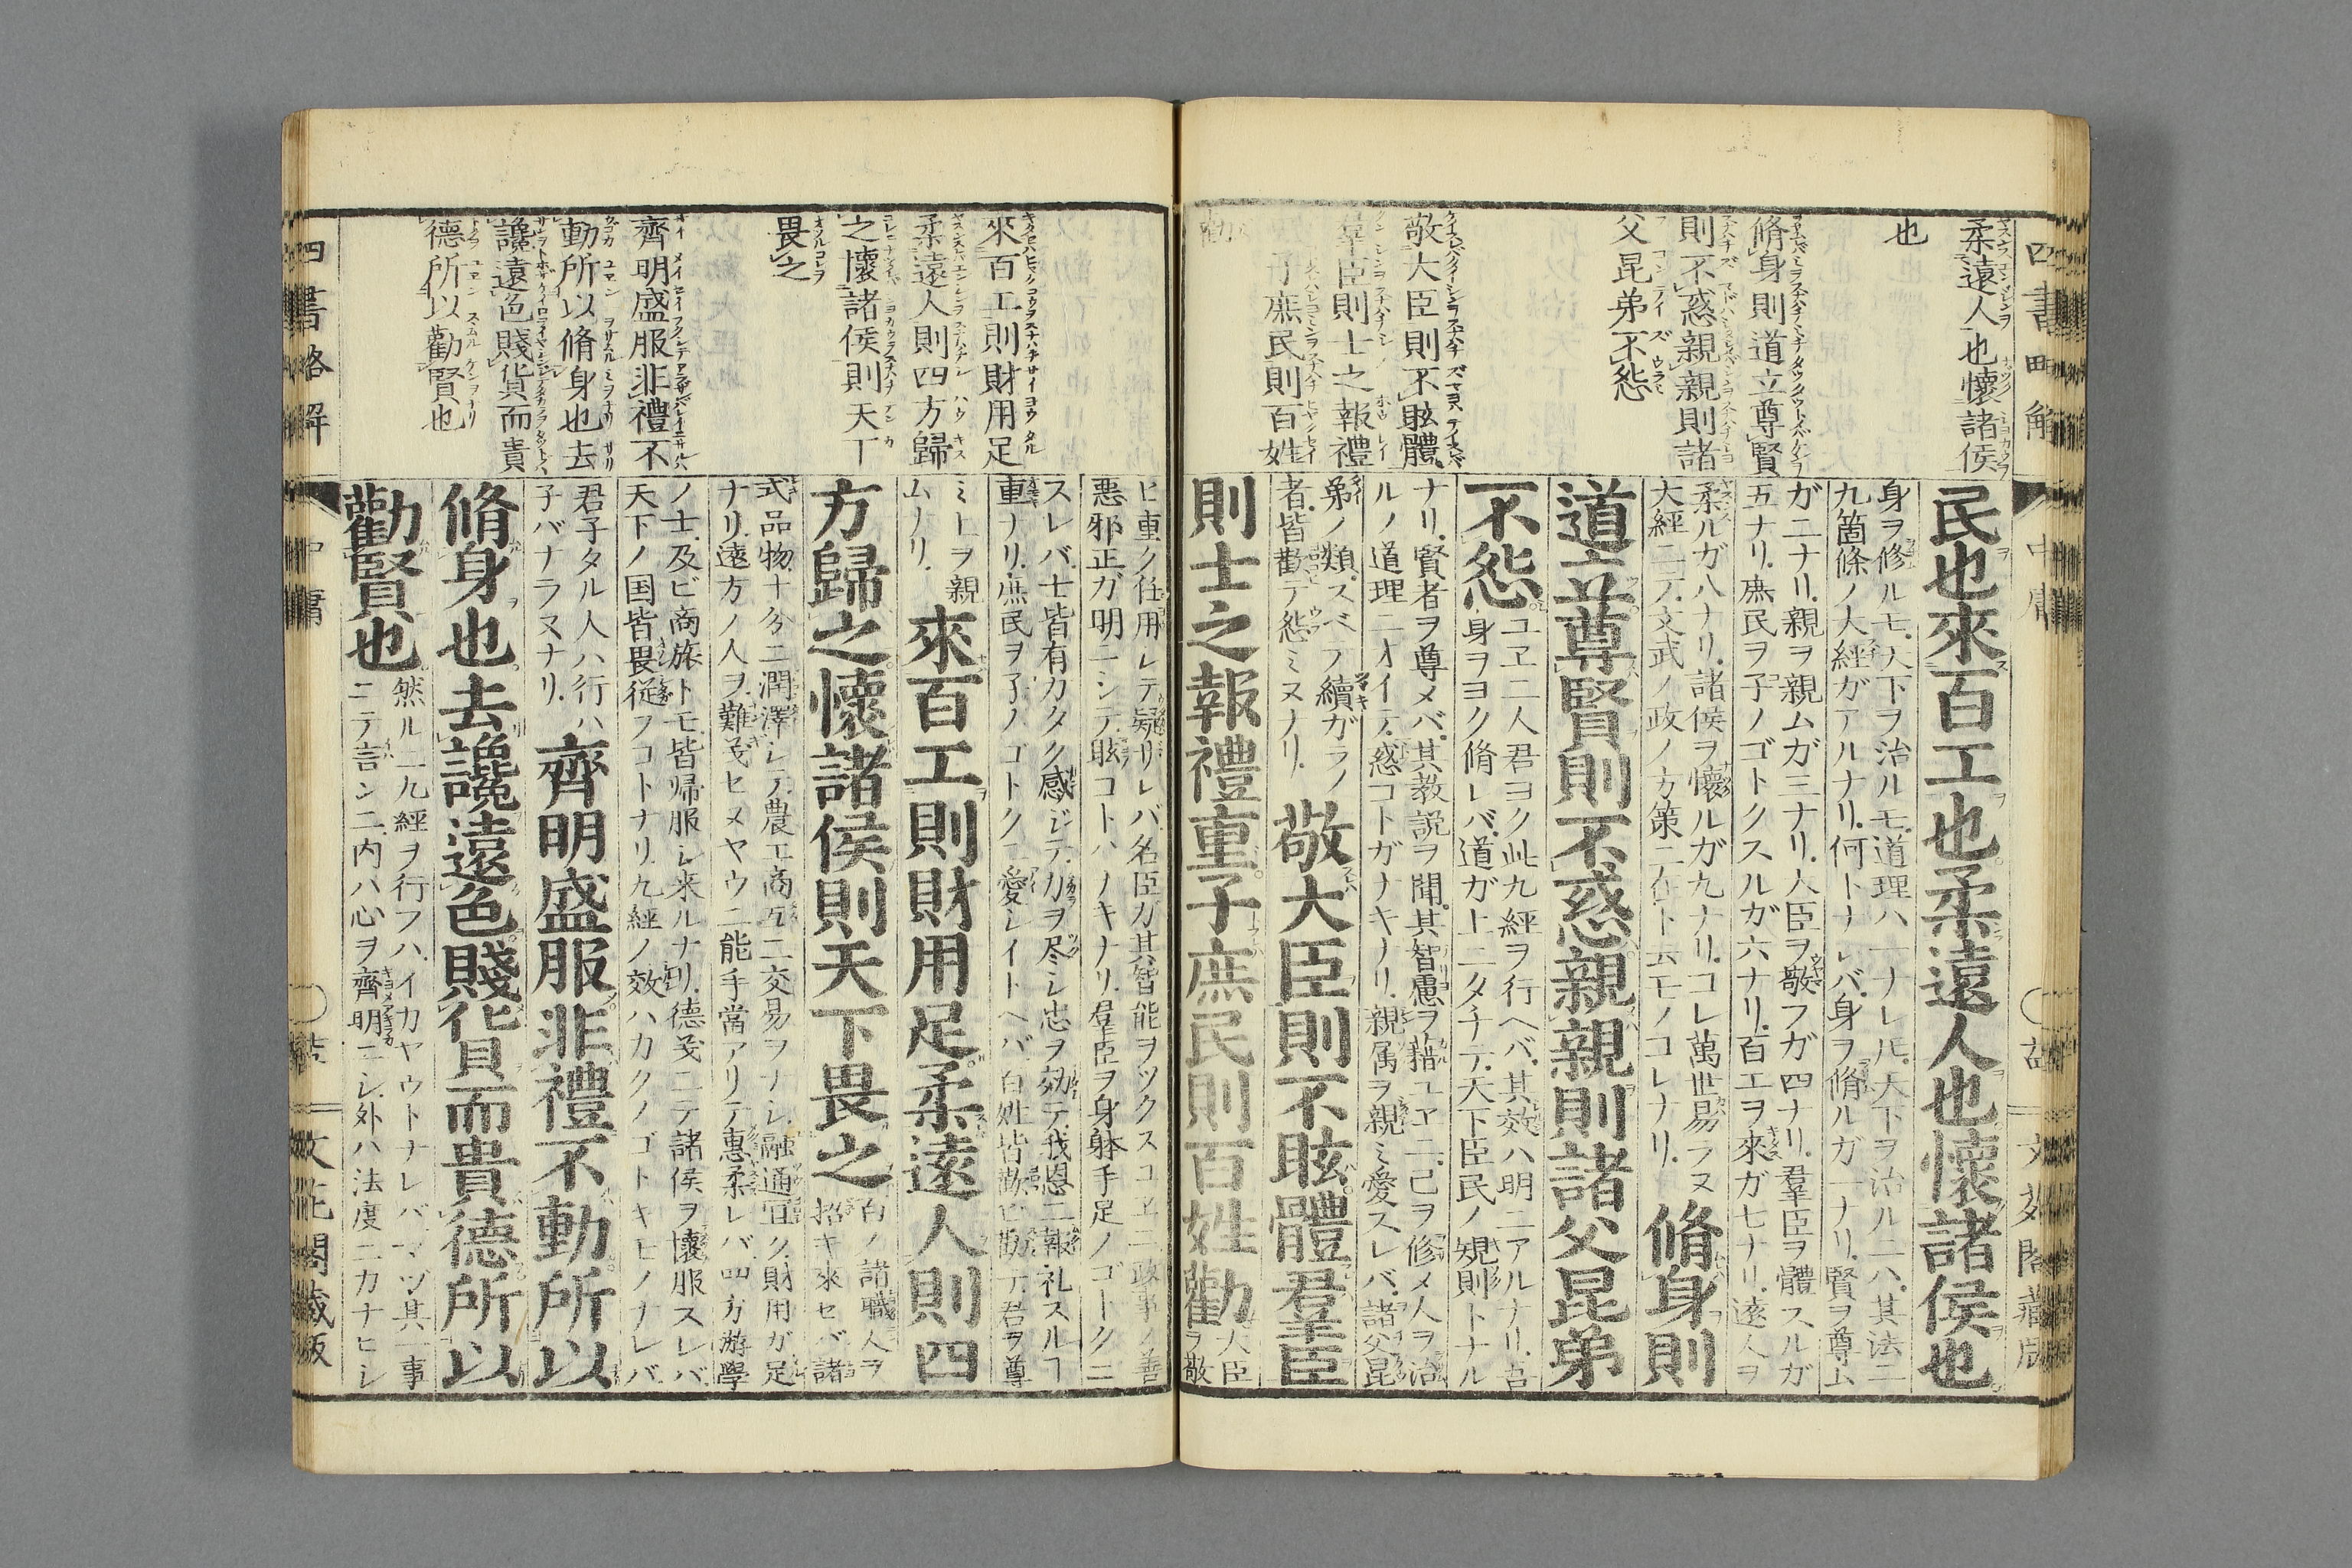 四書略解
中庸
文花閣蔵版
柔遠人也懷諸侯
也
脩身則道立尊賢
則不惑親親則諸
父昆弟不怨
敬大臣則不眩體
羣臣則士之報禮
子庶民則百姓
勸
民也來百工也柔遠人也懷諸侯也
身ヲ修ルモ天下ヲ治ルモ道理ハ一ナレ𪜈天下ヲ治ルニハ其法ニ
九箇條ノ大經ガアルナリ何トナレバ身ヲ脩ルガ一ナリ賢ヲ尊ム
ガ二ナリ親ヲ親ムガ三ナリ大臣ヲ敬フガ四ナリ羣臣ヲ體スルガ
五ナリ庶民ヲ子ノゴトクスルガ六ナリ百工ヲ來ガ七ナリ遠人ヲ
柔ルガ八ナリ諸侯ヲ懷ルガ九ナリコレ萬世易ラヌ
大經ニテ文武ノ政ノ方策ニ在ト云モノコレナリ
脩身則
道立尊賢則不惑親親則諸父昆弟
不怨
ユヱニ人君ヨク此九經ヲ行ヘバ其效ハ明ニアルナリ吾
身ヲヨク脩レバ道ガ上ニタチテ天下臣民ノ規則トナル
ナリ賢者ヲ尊メバ其教説ヲ聞其智慮ヲ藉ユヱニ己ヲ修メ人ヲ治
ルノ道理ニオイテ惑コトガナキナリ親属ヲ親ミ愛スレバ諸父昆
弟ノ類スベテ續ガラノ
者皆歡テ怨ミヌナリ
敬大臣則不眩體羣臣
則士之報禮重子庶民則百姓勸
大臣
ヲ敬
ヒ重ク任用レテ疑リレバ名臣ガ其智能ヲツクスユヱニ政事ノ善
悪邪正ガ明ニシテ眩コトハノキナリ羣臣ヲ身躰手足ノゴトクニ
スレバ士皆有カタク感ジテ力ヲ尽シ忠ヲ効テ我恩ニ報礼スルコ
重ナリ庶民ヲ子ノゴトクニ愛シイトヘバ百姓皆歡ビ勸テ君ヲ尊
ミ上ヲ親
ムナリ
來百工則財用足柔遠人則四
方歸之懷諸侯則天下畏之
百ノ諸職人ヲ
招キ來セバ諸
式品物十分ニ潤澤シテ農工商互ニ交易ヲナシ融通宜ク財用ガ足
ナリ遠方ノ人ヲ難義セヌヤウニ能手當アリテ惠柔レバ四方游學
ノ士及ビ商旅トモ皆帰服シ来ルナリ德義ニテ諸侯ヲ懷服スレバ
天下ノ国皆畏従フコトナリ九經ノ效ハカクノゴトキモノナレバ
君子タル人ハ行ハ
子バナラヌナリ
齊明盛服非禮不動所以
脩身也去讒遠色賤貨而貴德所以
勸賢也
然ルニ九經ヲ行フハイカヤウトナレバマヅ其一事
ニテ言ンニ内ハ心ヲ齊明ニシ外ハ法度ニカナヒシ
來百工則財用足
柔遠人則四方歸
之懷諸侯則天下
畏之
齊明盛服非禮不
動所以脩身也去
讒遠色賤貨而貴
德所以勸賢也
四書略解
中庸
文花閣蔵版